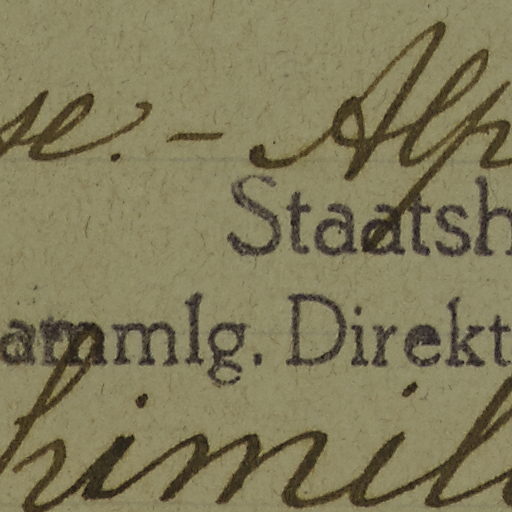 se. - Alp
Staatsh
ammlg. Direkt
himil